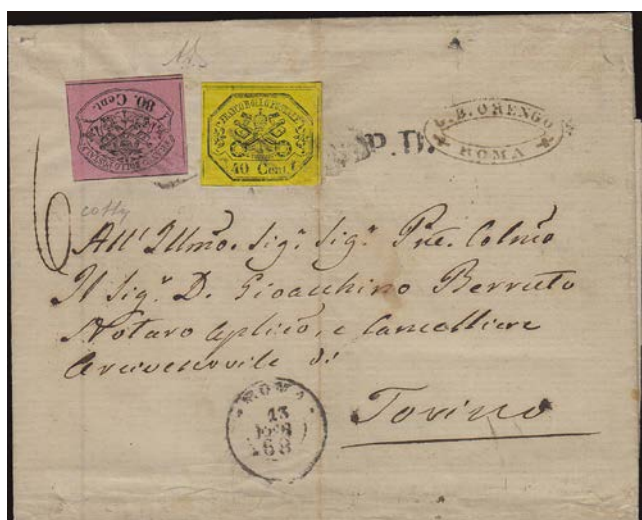 FRANCO BOLLO POSTALE
80. Cent.
FRANCO BOLLO POSTALE
40 Cent.
P.D.
G. B. ORENGO
ROMA
6
All' Illmo. Sigr. Sigr. Pne. Colmo
Il Sigr. D. Gioacchino Berruto
Notaro Aplico, e Cancelliere
Arcivescovile di
Torino
ROMA
13
68